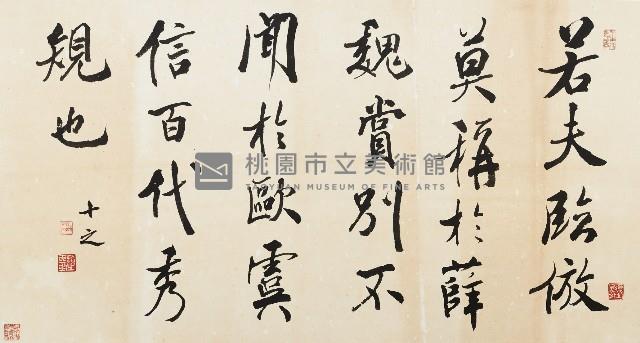 若夫臨倣
莫稱於薛
魏賞別不
聞於歐虞
信百代秀
規也
十之
桃園市立美術館
TAOYUAN MUSEUM OF FINE ARTS